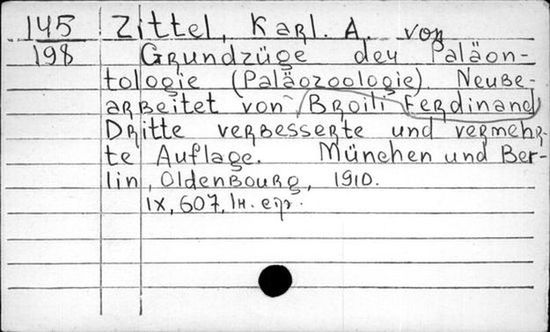 145 Zittel, Karl. A. von
198 Grundzüge der Paläon-
tologie (Paläozoologie). Neube-
arbeitet von Broili Ferdinand
Dritte verbesserte und vermehr-
te Auflage. München und Ber-
lin, Oldenbourg, 1910.
IX, 607,